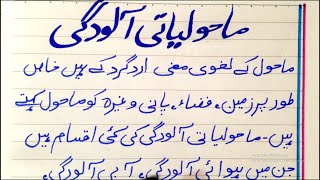 ماحولیاتی آلودگی
ماحول کے لغوی معنی اردگرد کے ہیں خاص
طور پر زمین، فضاء، پانی وغیرہ کو ماحول کہتے
ہیں۔ ماحولیاتی آلودگی کی کئی اقسام ہیں
جن میں ہوائی آلودگی، آبی آلودگی،